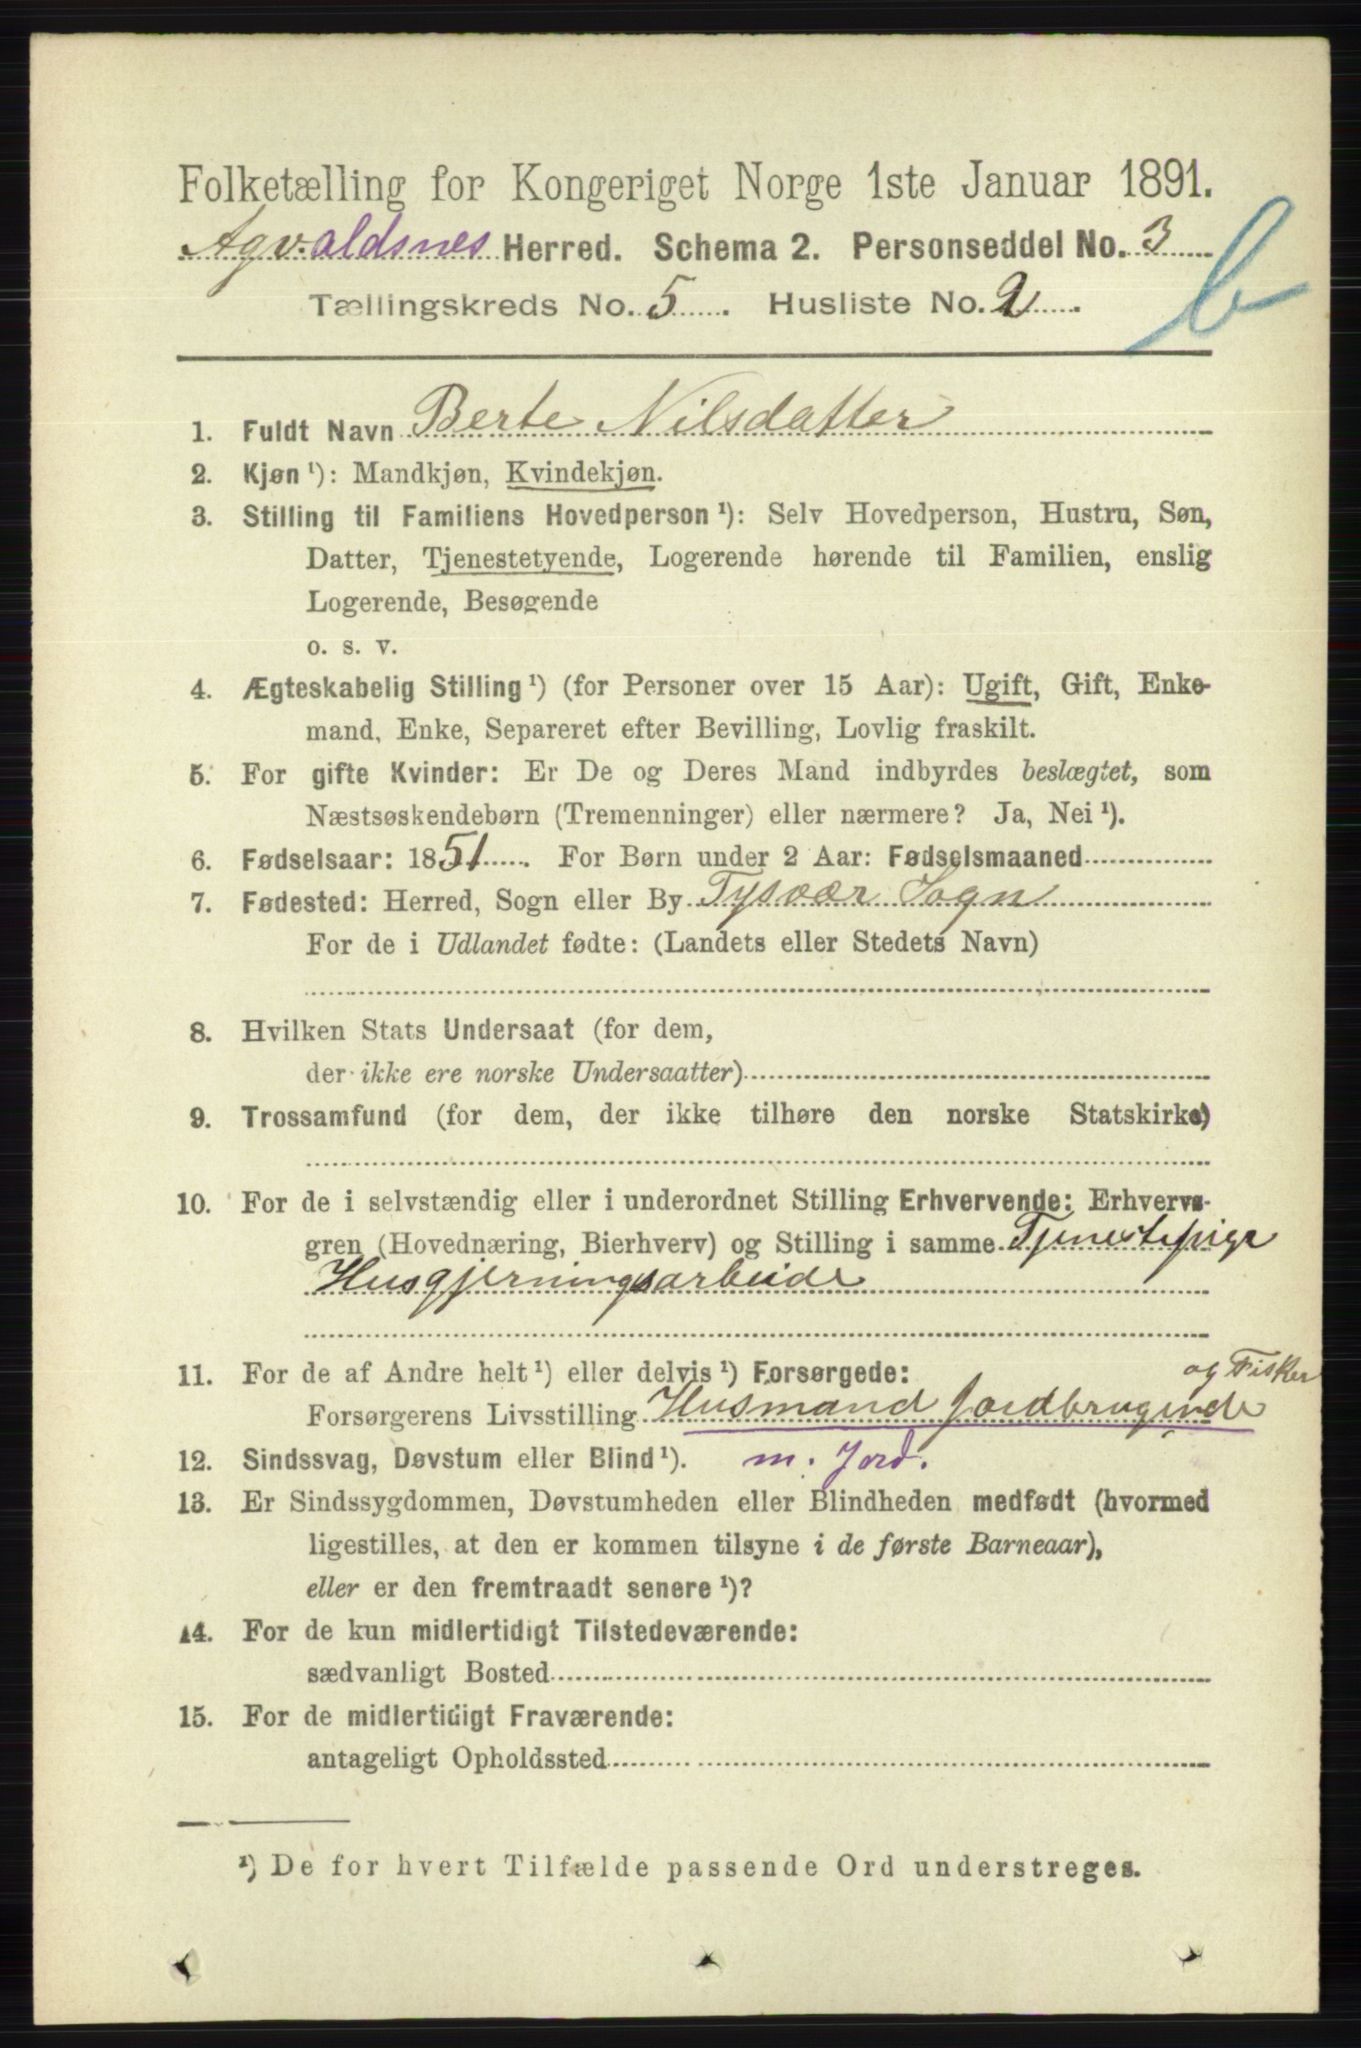 Folketælling for Kongeriget Norge 1ste Januar 1891.
Agv.aldsnes Herred. Schema 2. Personseddel No. 3
b
Tællingskreds No. 5. Husliste No. 2.
1. Fuldt Navn Berte Nilsdatter
2. Kjøn ¹): Mandkjøn, Kvindekjøn.
3. Stilling til Familiens Hovedperson ¹): Selv Hovedperson, Hustru, Søn,
Datter, Tjenestetyende, Logerende hørende til Familien, enslig
Logerende, Besøgende
o. s. v.
4. Ægteskabelig Stilling ¹) (for Personer over 15 Aar): Ugift, Gift, Enke-
mand, Enke, Separeret efter Bevilling, Lovlig fraskilt.
5. For gifte Kvinder: Er De og Deres Mand indbyrdes beslægtet, som
Næstsøskendebørn (Tremenninger) eller nærmere? Ja, Nei ¹).
6. Fødselsaar: 1851. For Børn under 2 Aar: Fødselsmaaned
7. Fødested: Herred, Sogn eller By Tysvær Sogn
For de i Udlandet fødte: (Landets eller Stedets Navn)
8. Hvilken Stats Undersaat (for dem,
der ikke ere norske Undersaatter)
9. Trossamfund (for dem, der ikke tilhøre den norske Statskirke)
10. For de i selvstændig eller i underordnet Stilling Erhvervende: Erhvervs-
gren (Hovednæring, Bierhverv) og Stilling i samme Tjenestepige
Husgjerningsarbeide
11. For de af Andre helt ¹) eller delvis ¹) Forsørgede:
og Fisker
Forsørgerens Livsstilling Husmand Jordbrugende
12. Sindssvag, Døvstum eller Blind ¹). m. Jord.
13. Er Sindssygdommen, Døvstumheden eller Blindheden medfødt (hvormed
ligestilles, at den er kommen tilsyne i de første Barneaar),
eller er den fremtraadt senere ¹)?
14. For de kun midlertidigt Tilstedeværende:
sædvanligt Bosted
15. For de midlertidigt Fraværende:
antageligt Opholdssted
¹) De for hvert Tilfælde passende Ord understreges.